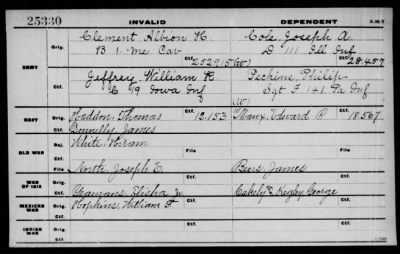 25330
INVALID
DEPENDENT
ARMY
Orig.
Clement Albion K
Cole, Joseph A.
B 1. Me Cav
D 111 Ill Inf
Ctf.
252915
Ctf.
28.457
Orig.
Jeffrey, William R
Perkins, Philip
C 19 Iowa Inf
Sgt F 141 Pa Inf
Ctf.
NAVY
Orig.
Haddon, Thomas
13.153
Edward R
18.567
Ctf.
Donnelly, James
OLD WAR
Rej.
White, Hiram
File
File
North, Joseph E.
Beers, James
WAR OF 1812
Orig.
Elisha W.
George
Ctf.
MEXICAN WAR
Orig.
Hopkins, William F.
Ctf.
INDIAN WAR
Orig.
Ctf.